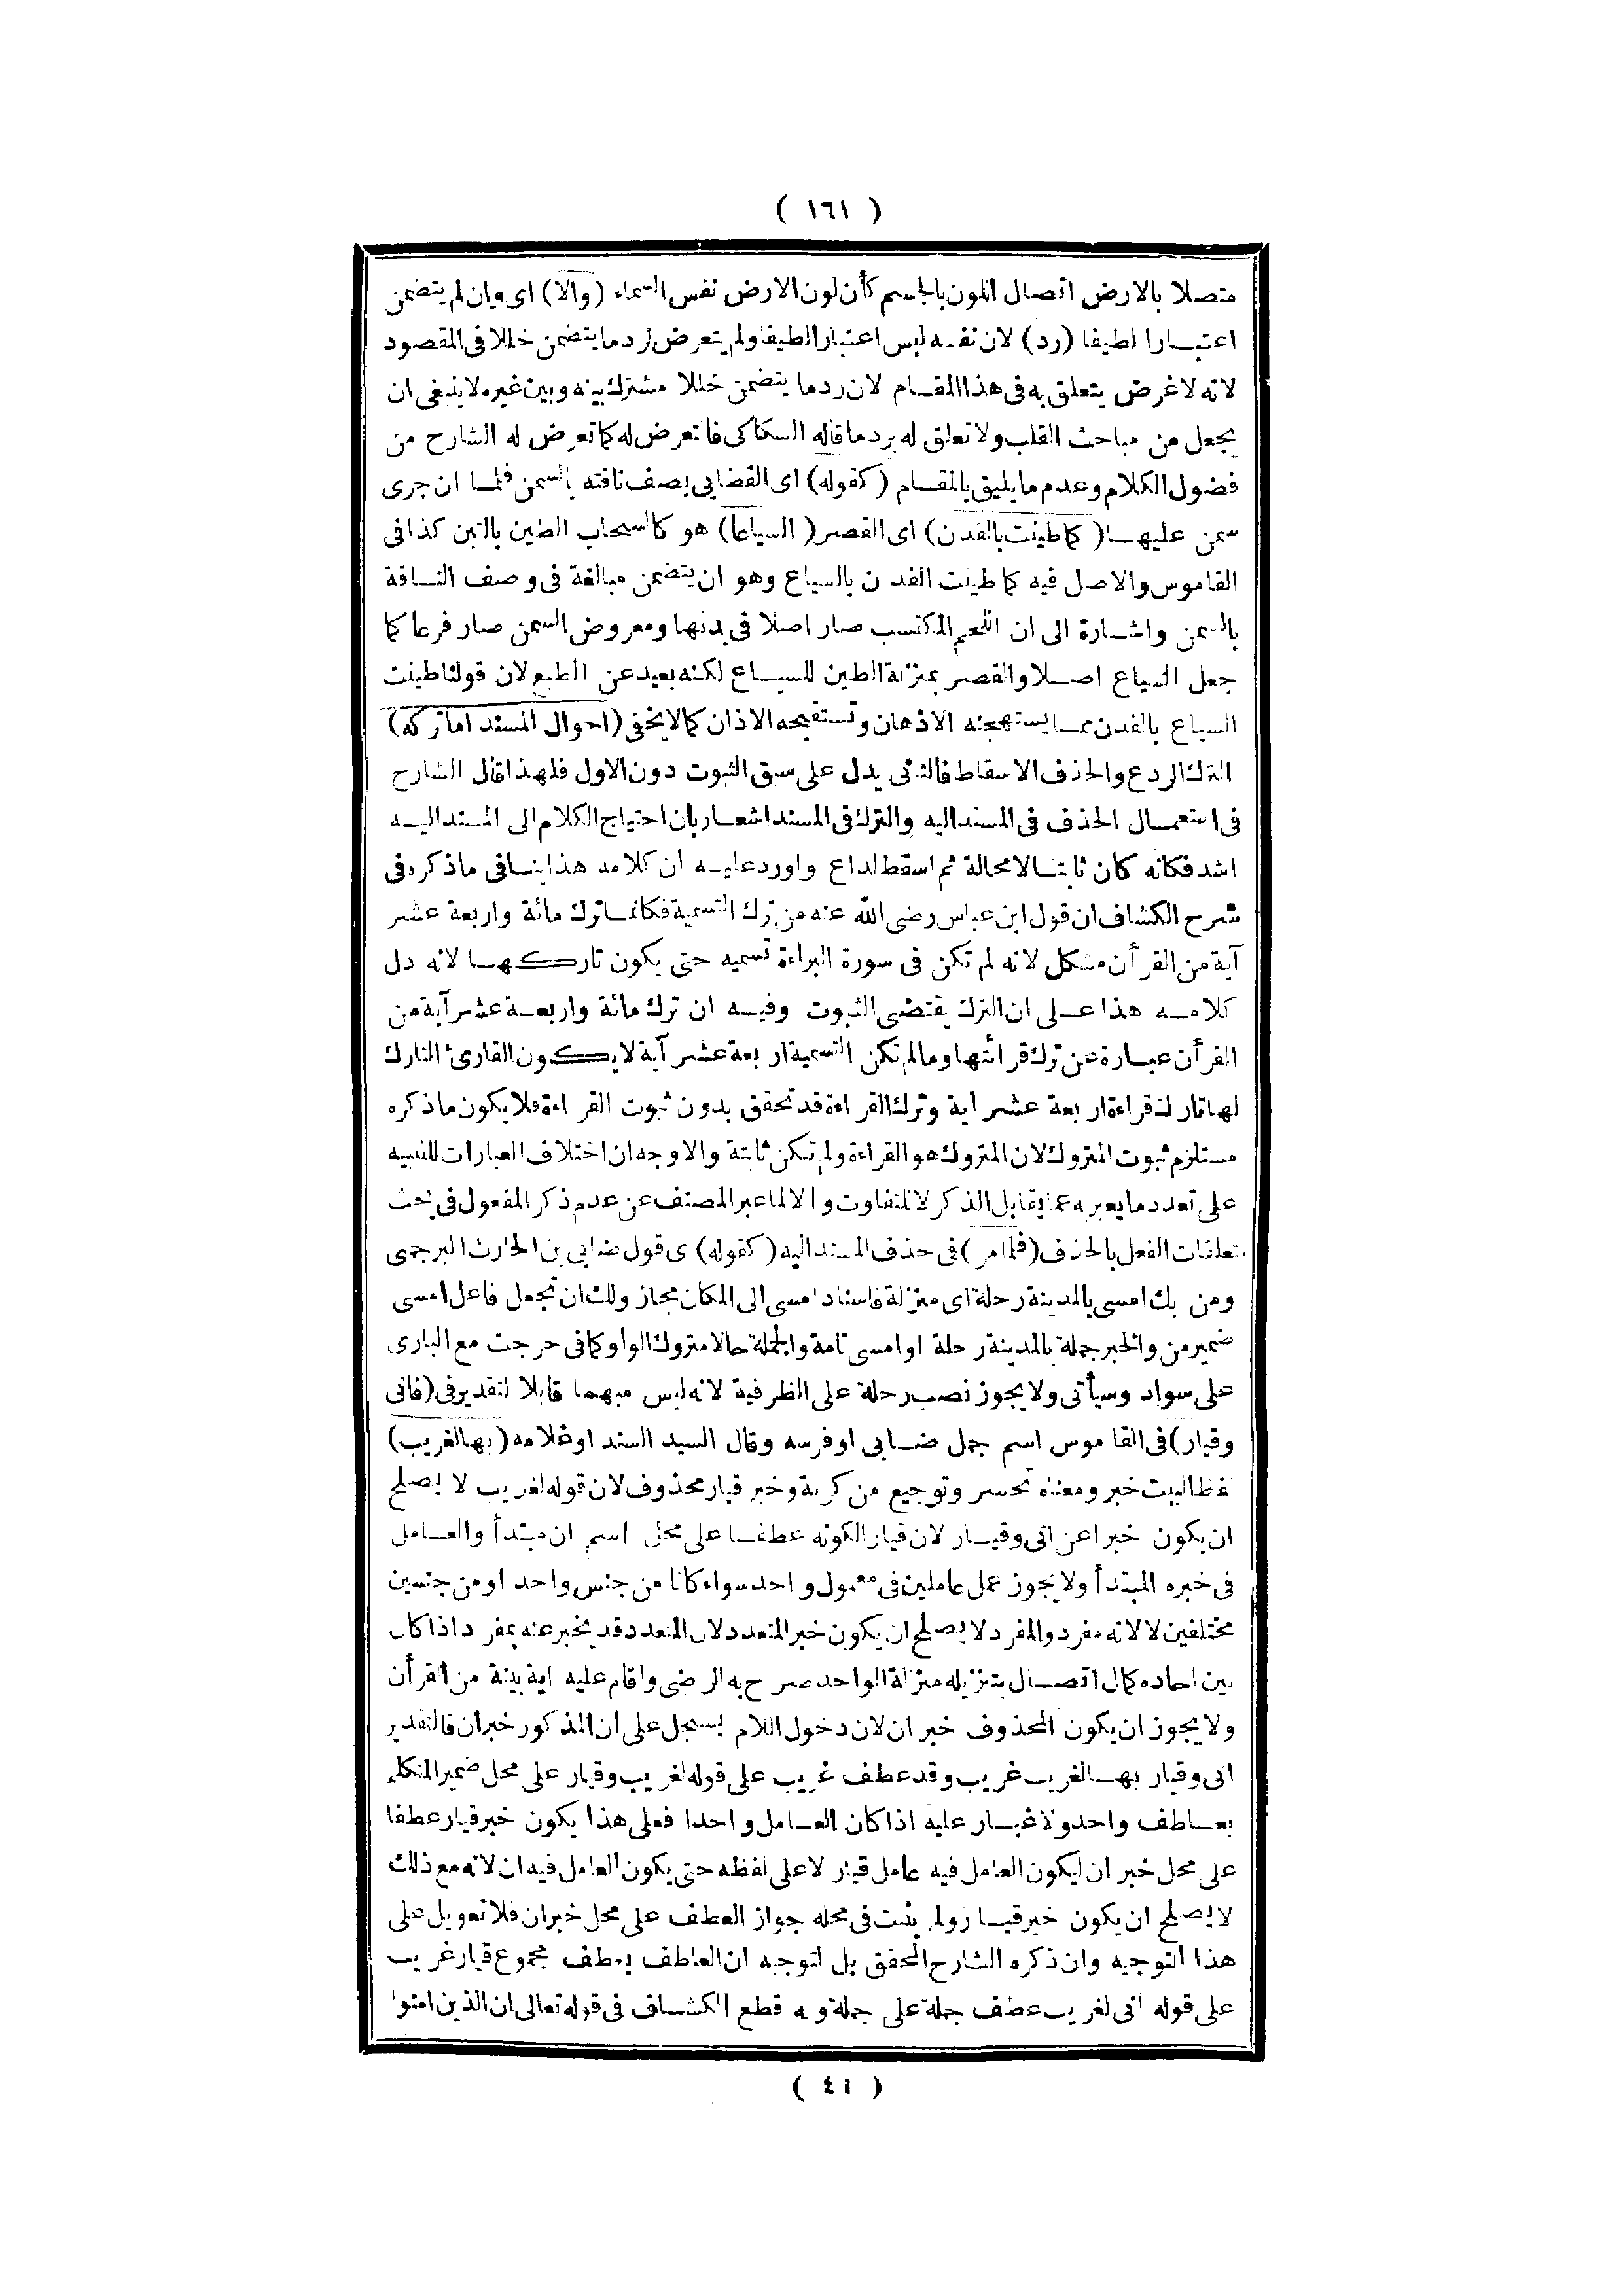 ( ١٦١ )
متصلا بالارض اتصال اللون بالجسم كأن لون الارض نفس السماء (والا) اى وان لم يتضمن
اعتبارا لطيفا (رد) لان نفسه ليس اعتبارا لطيفا ولم يتعرض لرد ما يتضمن خللا فى المقصود
لانه لا غرض يتعلق به فى هذا المقام لان رد ما يتضمن خللا مشترك بينه وبين غيره لا ينبغى ان
يجعل من مباحث القلب ولا تعلق له برد ما قاله السكاكى فا تعرض له كما تعرض له الشارح من
فضول الكلام وعدم ما يليق بالمقام (كقوله) اى القضابى يصف ناقته بالسمن فلما ان جرى
سمن عليها (كما طينت بالفدن) اى القصر (السياعا) هو كالسحاب الطين بالتبن كذا فى
القاموس والاصل فيه كما طينت الفدن بالسياع وهو ان يتضمن مبالغة فى وصف الناقة
بالسمن واشارة الى ان اللحم المكتسب صار اصلا فى بدنها ومعروض السمن صار فرعا كما
جعل السياع اصلا والقصر بمنزلة الطين للسياع لكنه بعيد عن الطبع لان قولنا طينت
السياع بالفدن مما يستهجنه الاذهان وتستقبحه الاذان كما لا يخفى (احوال المسند اما تركه)
الترك الردع والحذف الاسقاط فالثانى يدل على سبق الثبوت دون الاول فلهذا قال الشارح
فى استعمال الحذف فى المسند اليه والترك فى المسند اشعار بان احتياج الكلام الى المسند اليه
اشد فكانه كان ثابتا لا محالة ثم اسقط لداع واورد عليه ان كلامه هذا ينافى ما ذكره فى
شرح الكشاف ان قول ابن عباس رضى الله عنه من ترك التسمية فكانما ترك مائة واربعة عشر
آية من القرأن مشكل لانه لم تكن فى سورة البراءة تسميه حتى يكون تاركها لانه دل
كلامه هذا على ان الترك يقتضى الثبوت وفيه ان ترك مائة واربعة عشر آية من
القرأن عبارة عن ترك قرائتها وما لم تكن التسمية اربعة عشر آية لا يكون القارئ التارك
لها تارك قراءة اربعة عشر اية وترك القراءة قد تحقق بدون ثبوت القراءة فلا يكون ما ذكره
مستلزم ثبوت المتروك لان المتروك هو القراءة ولم تكن ثابتة والاوجه ان اختلاف العبارات للتنبيه
على تعدد ما يعبر به عما يقابل الذكر لا للتفاوت والا لما عبر المصنف عن عدم ذكر المفعول فى بحث
متعلقات الفعل بالحذف (فلما مر) فى حذف المسند اليه (كقوله) ى قول ضابى بن الحارث البرجمى
ومن يك امسى بالمدينة رحلة اى منزلة فاسناد امسى الى المكان مجاز ولك ان تجعل فاعل امسى
ضمير من والخبر جملة بالمدينة رحلة او امسى تامة والجملة حالا متروك الواو كما فى خرجت مع البازى
على سواد وسيأتى ولا يجوز نصب رحلة على الظرفية لانه ليس مبهما قابلا لتقدير فى (فانى
وقيار) فى القاموس اسم جمل ضابى او فرسه وقال السيد السند او غلامه (بها لغريب)
لفظ البيت خبر ومعناه تحسر وتوجيع من كربة وخبر قيار محذوف لان قوله لغريب لا يصلح
ان يكون خبرا عن انى وقيار لان قيار الكونه عطفا على محل اسم ان مبتدأ والعامل
فى خبره المبتدأ ولا يجوز عمل عاملين فى معمول واحد سواء كانا من جنس واحد او من جنسين
مختلفين لا لانه مفرد والمفرد لا يصلح ان يكون خبر المتعدد لان المتعدد قد يخبر عنه بمفرد اذا كان
بين احاده كمال اتصال بتنزيله منزلة الواحد صرح به الرضى واقام عليه اية بينة من القرأن
ولا يجوز ان يكون المحذوف خبر ان لان دخول اللام يسجل على ان المذكور خبر ان فالتقدير
انى وقيار بها لغريب غريب وقد عطف غريب على قوله لغريب وقيار على محل ضمير المتكلم
بعاطف واحد ولا غبار عليه اذا كان العامل واحدا فعلى هذا يكون خبر قيار عطفا
على محل خبر ان ليكون العامل فيه عامل قيار لا على لفظه حتى يكون العامل فيه ان لانه مع ذلك
لا يصلح ان يكون خبر قيار ولم يثبت فى محله جواز العطف على محل خبر ان فلا تعويل على
هذا التوجيه وان ذكره الشارح المحقق بل التوجيه ان العاطف يعطف مجموع قيار غريب
على قوله انى لغريب عطف جملة على جملة و به قطع الكشاف فى قوله تعالى ان الذين امنوا
( ٤١ )